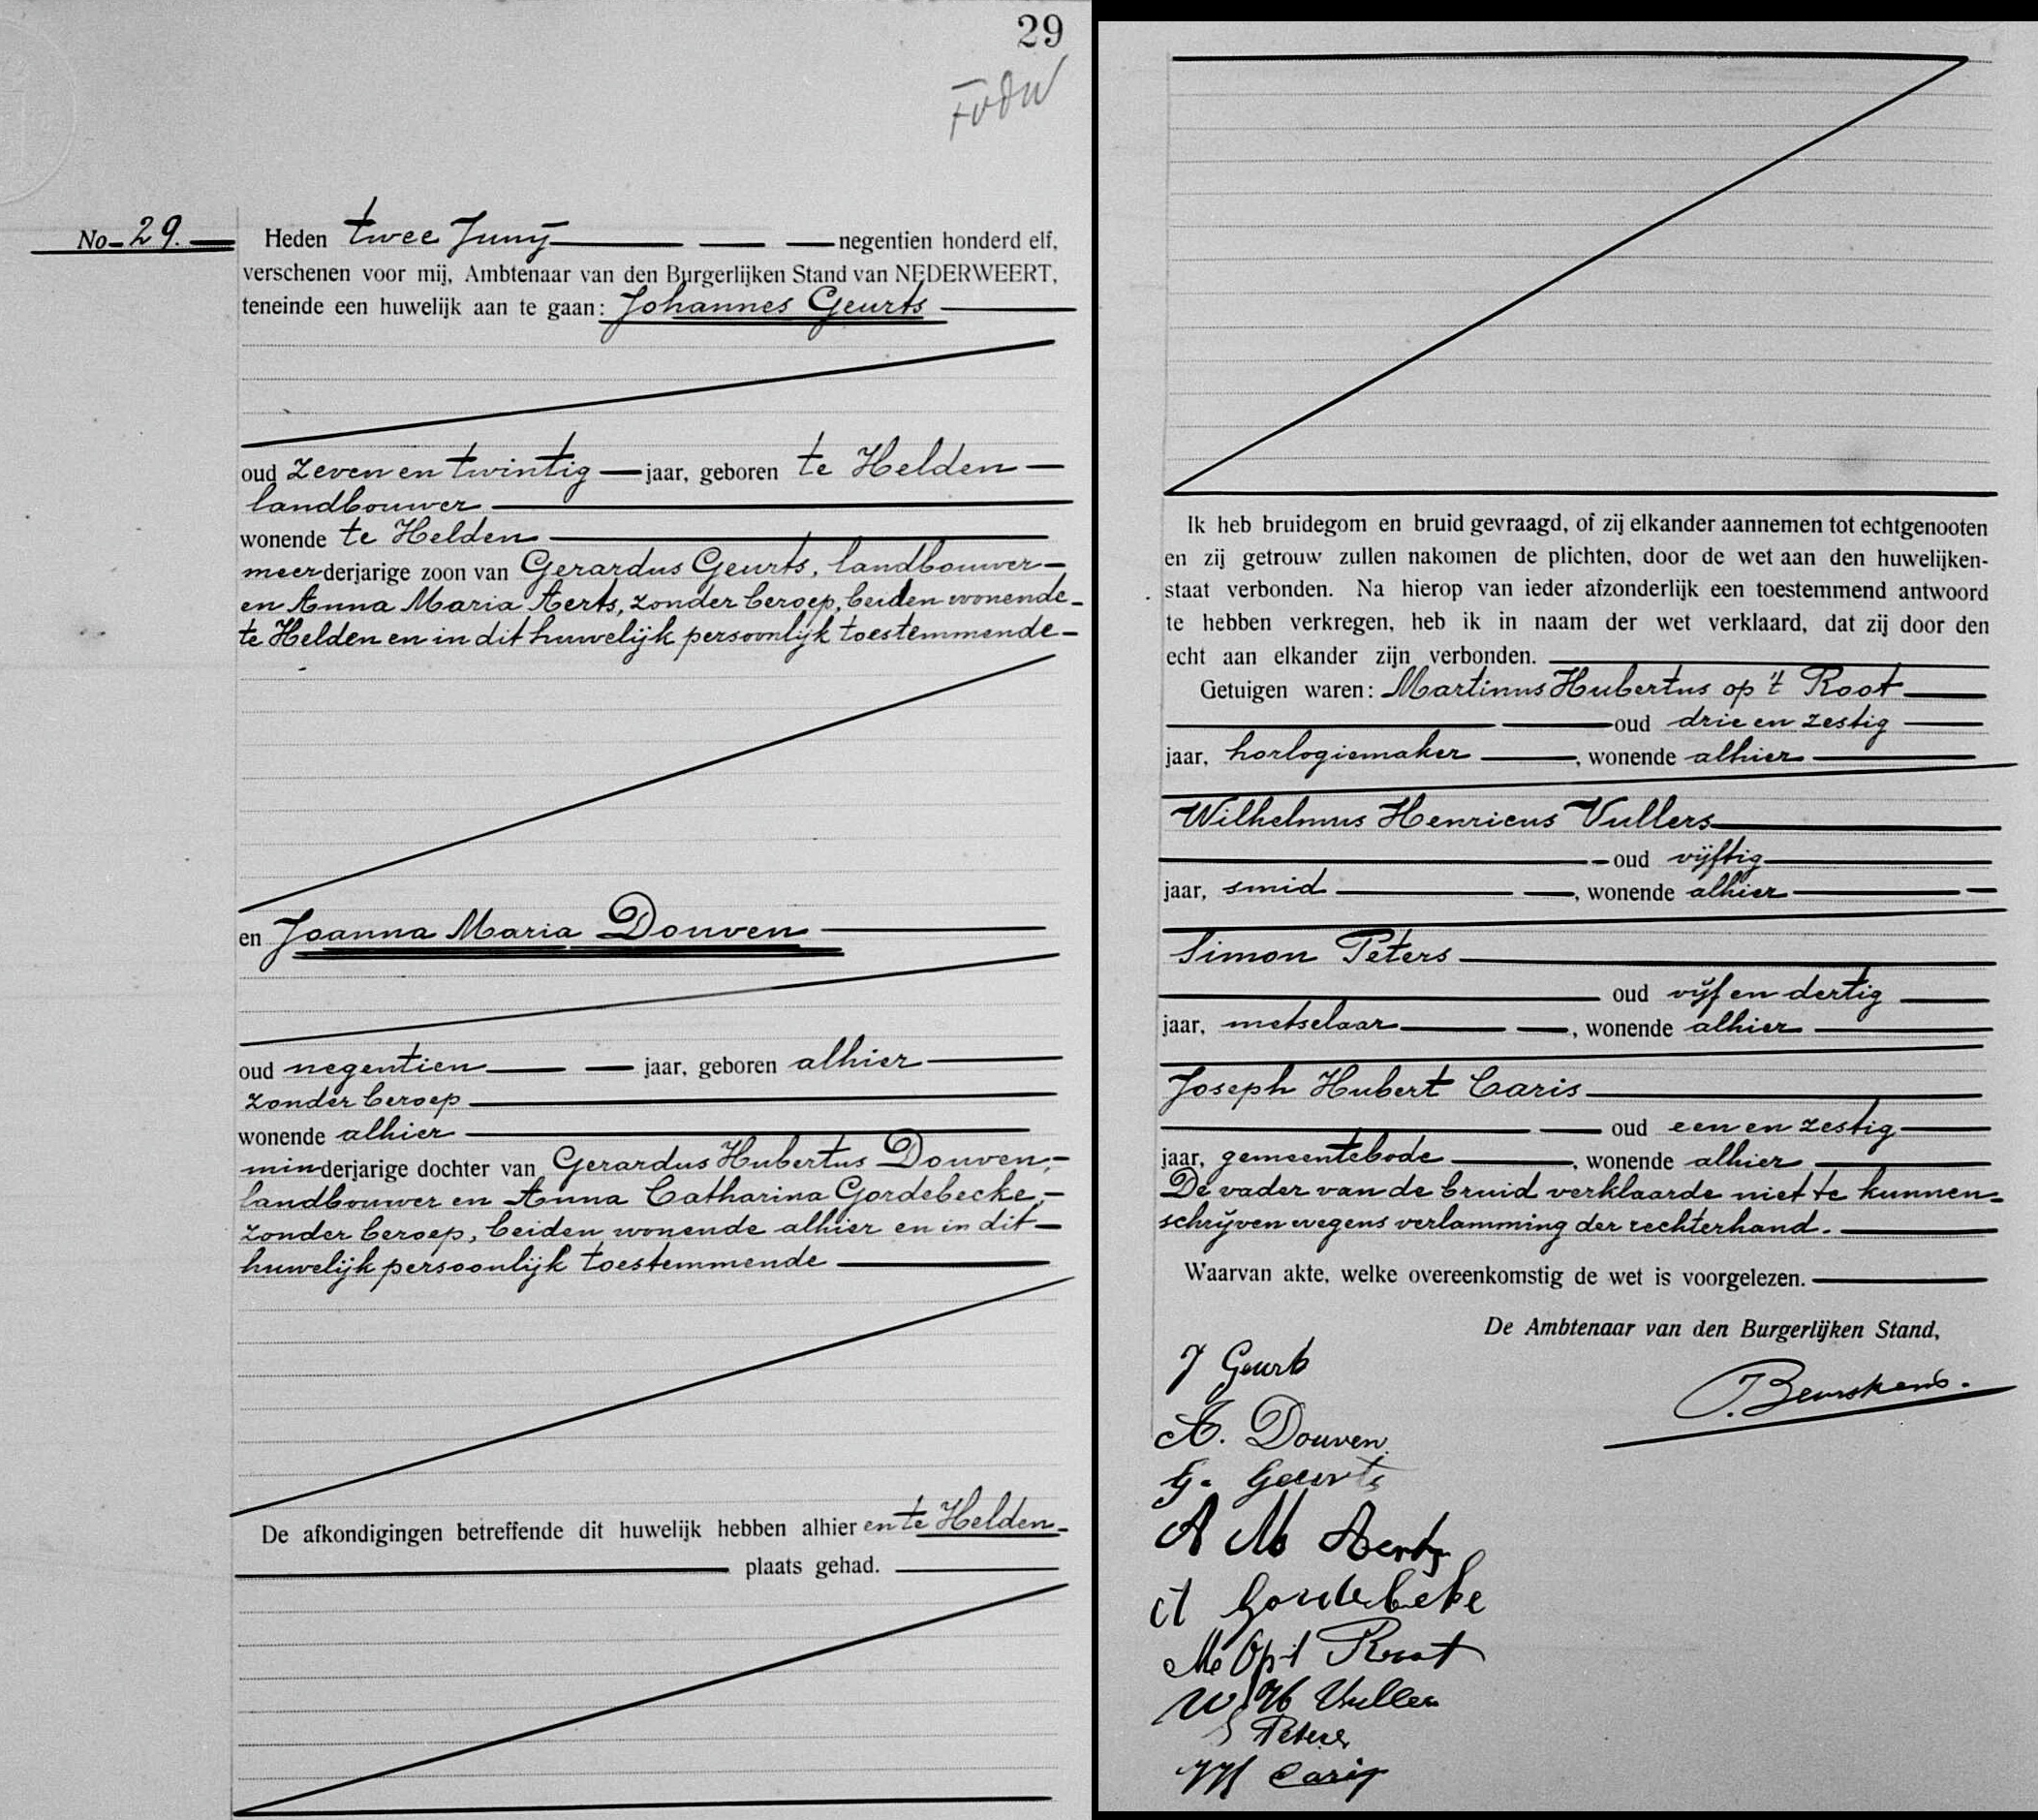 29
No 29.
Heden twee Juny negentien honderd elf,
verschenen voor mij, Ambtenaar van den Burgerlijken Stand van NEDERWEERT,
teneinde een huwelijk aan te gaan: Johannes Geurts
oud zeven en twintig jaar, geboren te Helden
landbouwer
wonende te Helden
meerderjarige zoon van Gerardus Geurts, landbouwer
en Anna Maria Aerts, zonder beroep, beiden wonende
te Helden en in dit huwelijk persoonlijk toestemmende
en Joanna Maria Douven
oud negentien jaar, geboren alhier
zonder beroep
wonende alhier
minderjarige dochter van Gerardus Hubertus Douven,
landbouwer en Anna Catharina Gordebecke,
zonder beroep, beiden wonende alhier en in dit
huwelijk persoonlijk toestemmende
De afkondigingen betreffende dit huwelijk hebben alhier en te Helden
plaats gehad.
Ik heb bruidegom en bruid gevraagd, of zij elkander aannemen tot echtgenooten
en zij getrouw zullen nakomen de plichten, door de wet aan den huwelijken-
staat verbonden. Na hierop van ieder afzonderlijk een toestemmend antwoord
te hebben verkregen, heb ik in naam der wet verklaard, dat zij door den
echt aan elkander zijn verbonden.
Getuigen waren: Martinus Hubertus op 't Root
oud drie en zestig
jaar, horlogiemaker, wonende alhier
Wilhelmus Henricus Vullers
oud vijftig
jaar, smid, wonende alhier
Simon Peters
oud vijf en dertig
jaar, metselaar, wonende alhier
Joseph Hubert Caris
oud een en zestig
jaar, gemeentebode, wonende alhier
De vader van de bruid verklaarde niet te kunnen
schrijven wegens verlamming der rechterhand.
Waarvan akte, welke overeenkomstig de wet is voorgelezen.
De Ambtenaar van den Burgerlijken Stand,
J Geurts
Beurskens.
A. Douven
G. Geurts
A M Aerts
A Gordebeke
M Op t Root
W H Vullers
S Peters
JH Caris